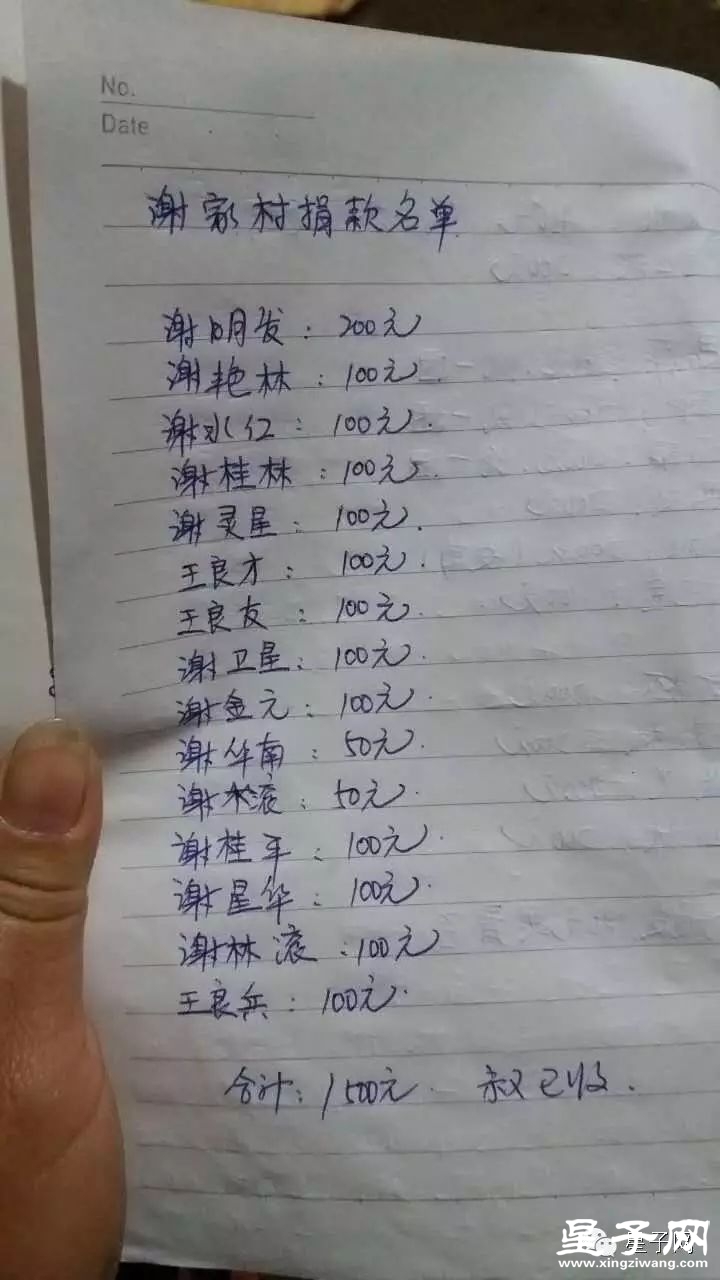 No.
Date
谢家村捐款名单
谢明发：200元
谢艳林：100元.
谢水红：100元.
谢桂林：100元.
谢灵星：100元.
王良才：100元.
王良友：100元.
谢卫星：100元.
谢金元：100元.
谢华南：50元.
谢木滚：50元.
谢桂平：100元.
谢星华：100元.
谢林滚：100元
王良兵：100元.
合计：1500元. 叔已收.
星子网
星子网
www.xingziwang.com